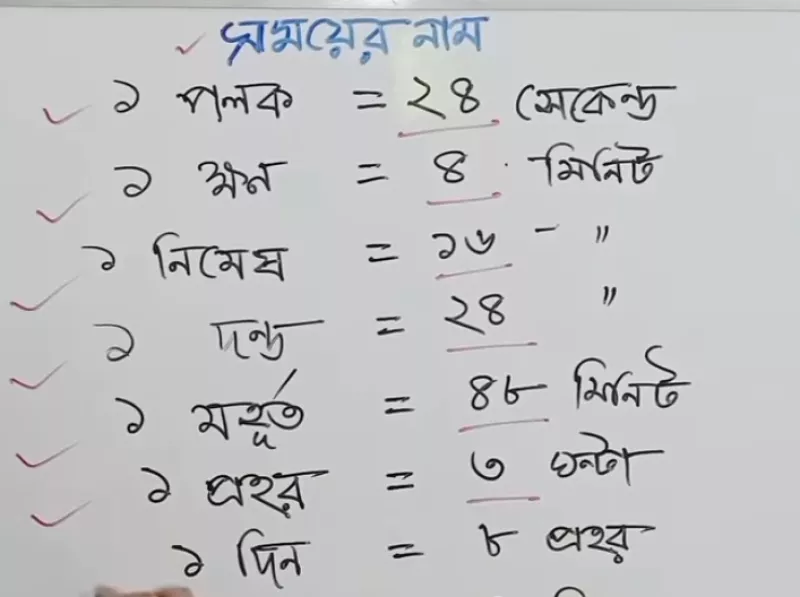 সময়ের নাম
১ পলক = ২৪ সেকেন্ড
১ ক্ষন = ৪ মিনিট
১ নিমেষ = ১৬ - "
১ দন্ড = ২৪ "
১ মহূর্ত = ৪৮ মিনিট
১ প্রহর = ৩ ঘন্টা
১ দিন = ৮ প্রহর